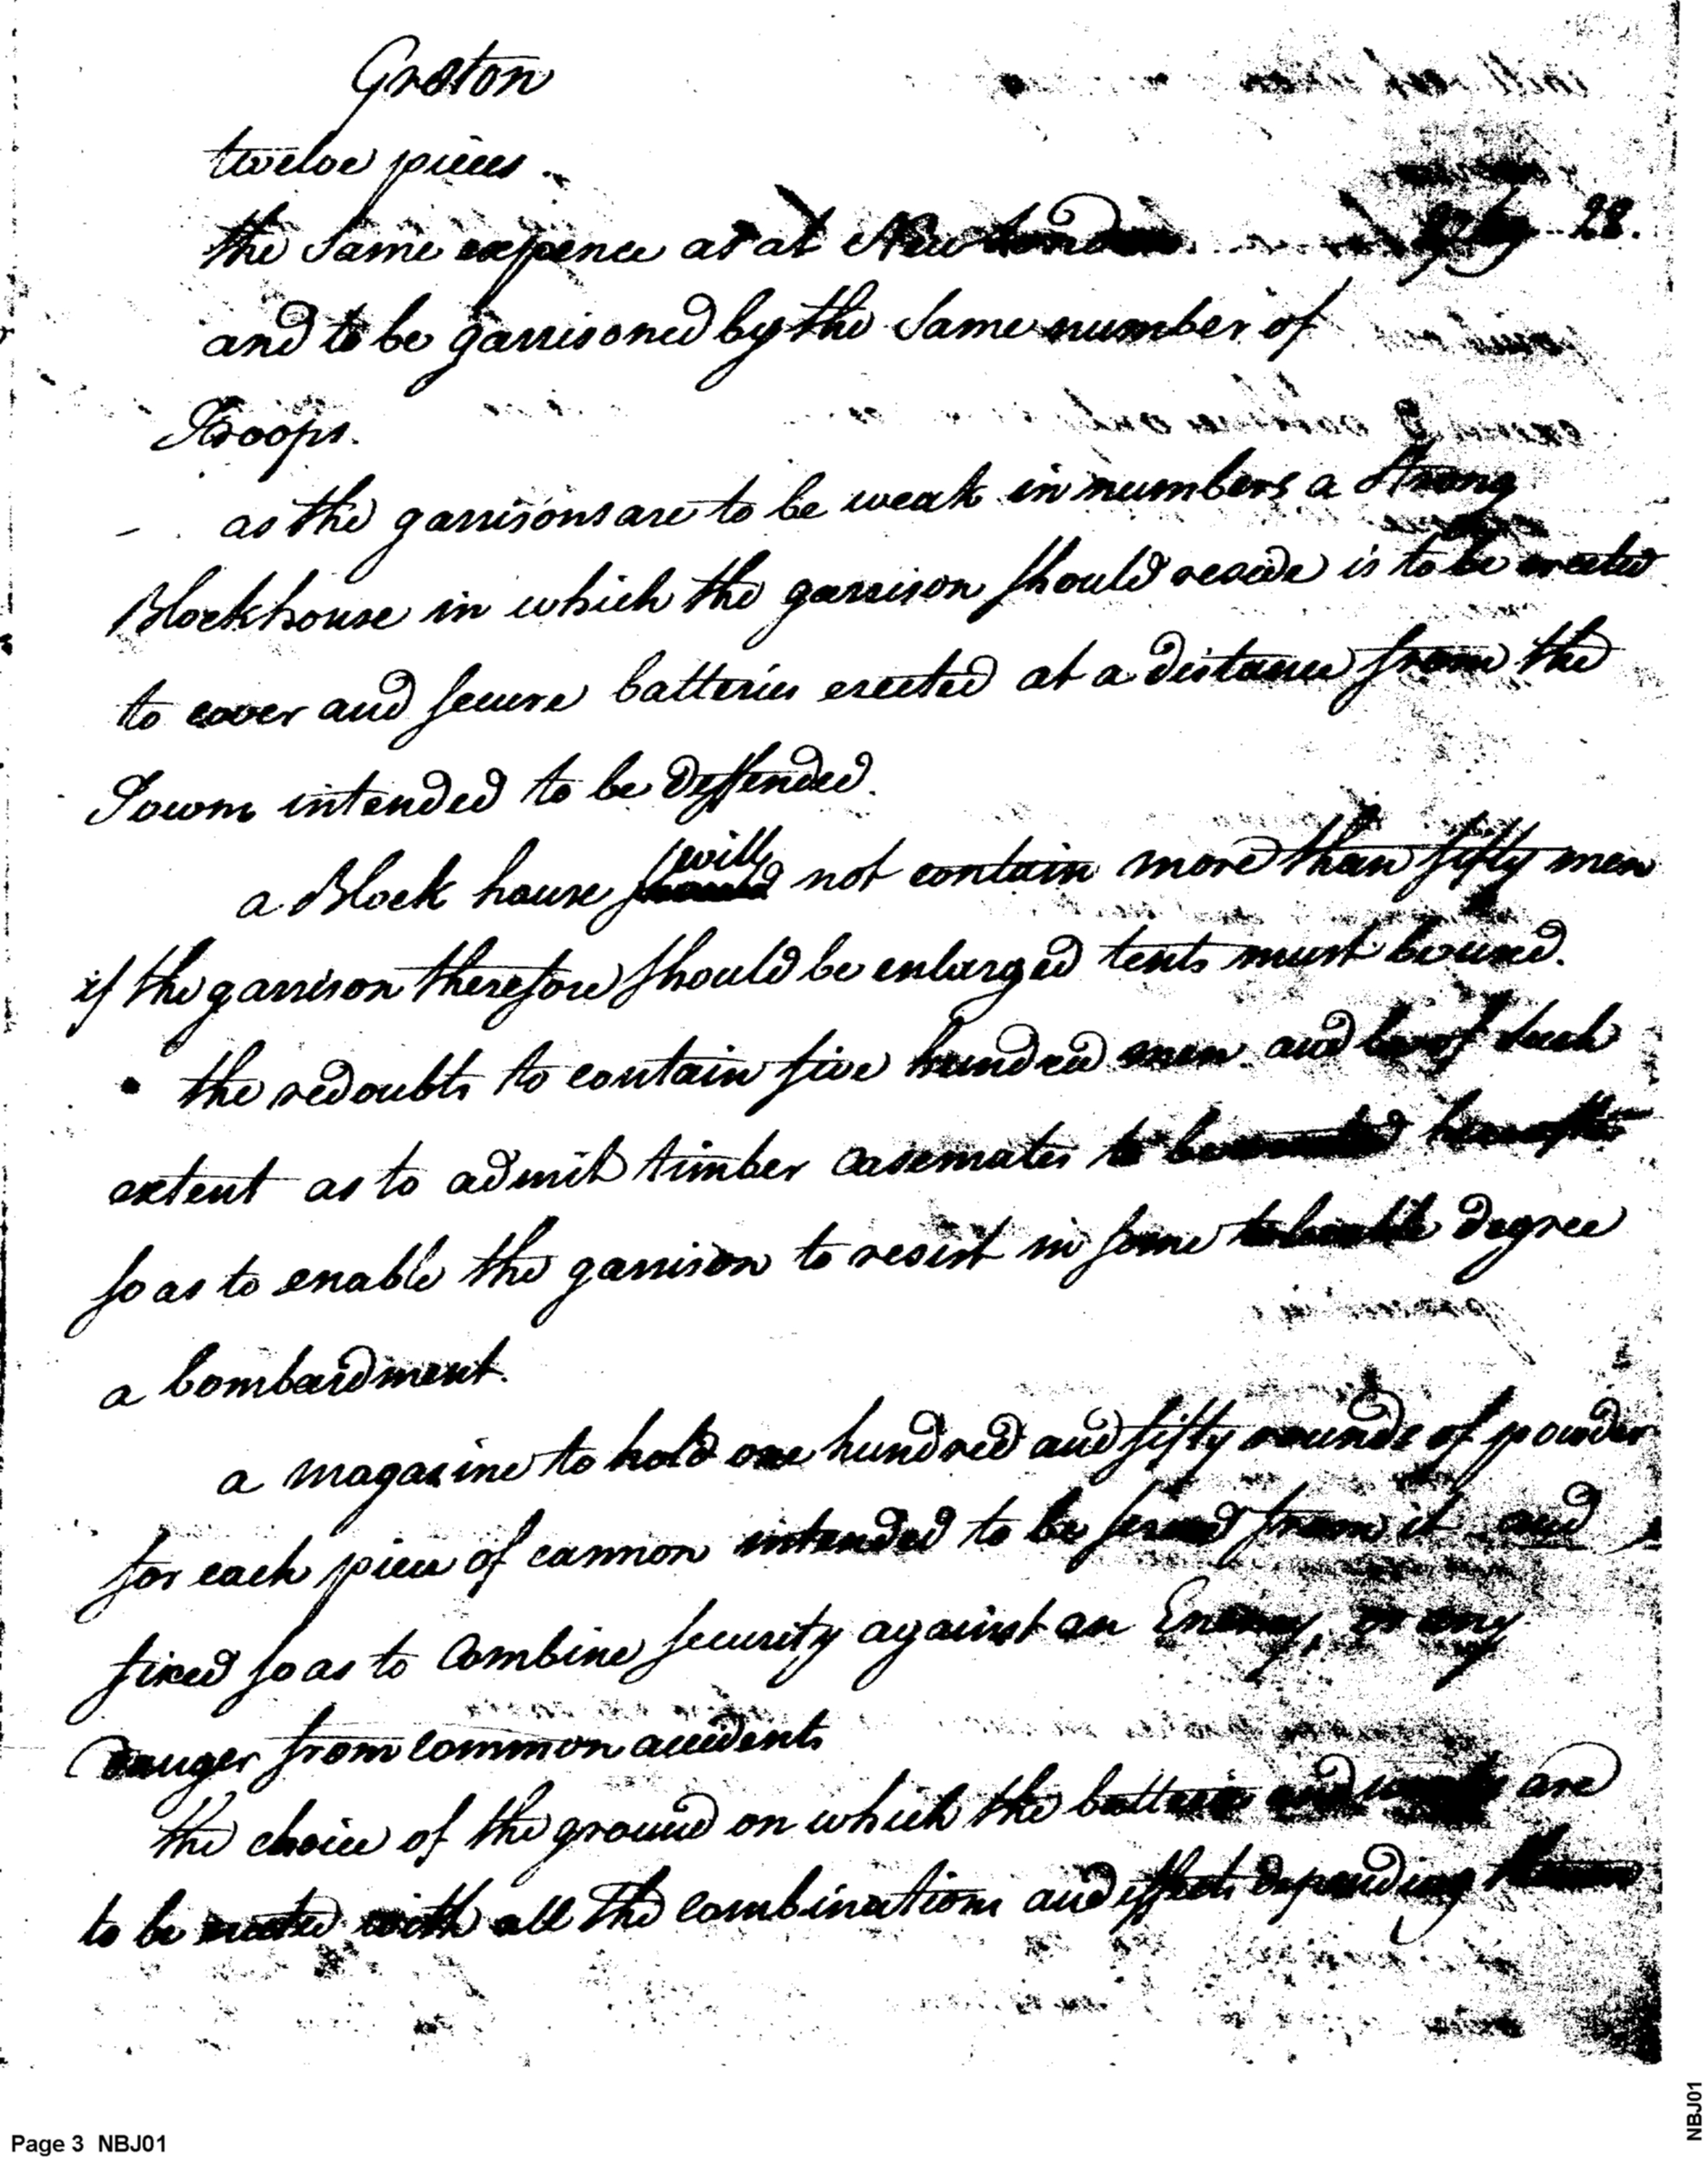 Groton
twelve pieces.
the Same expence as at New London 28.
and to be garrisoned by the Same number of
Troops.
- as the garrisons are to be weak in numbers a strong
Block house in which the garrison should reside is to be erected
to cover and secure batteries erected at a distance from the
Town intended to be deffended.
will
a Block house should not contain more than fifty men
if the garrison therefore should be enlarged tents must be used.
the redoubts to contain five hundred men and be of such
extent as to admit timber casemates to be
so as to enable the garrison to resist in some degree
a bombardment.
a magazine to hold one hundred and fifty rounds of powder
for each piece of cannon intended to be served from it and
fixed so as to combine security against an Enemy, or any
danger from common accidents
the choice of the ground on which the batteries and works are
to be erected with all the combinations and effects depending
Page 3 NBJ01
NBJ01